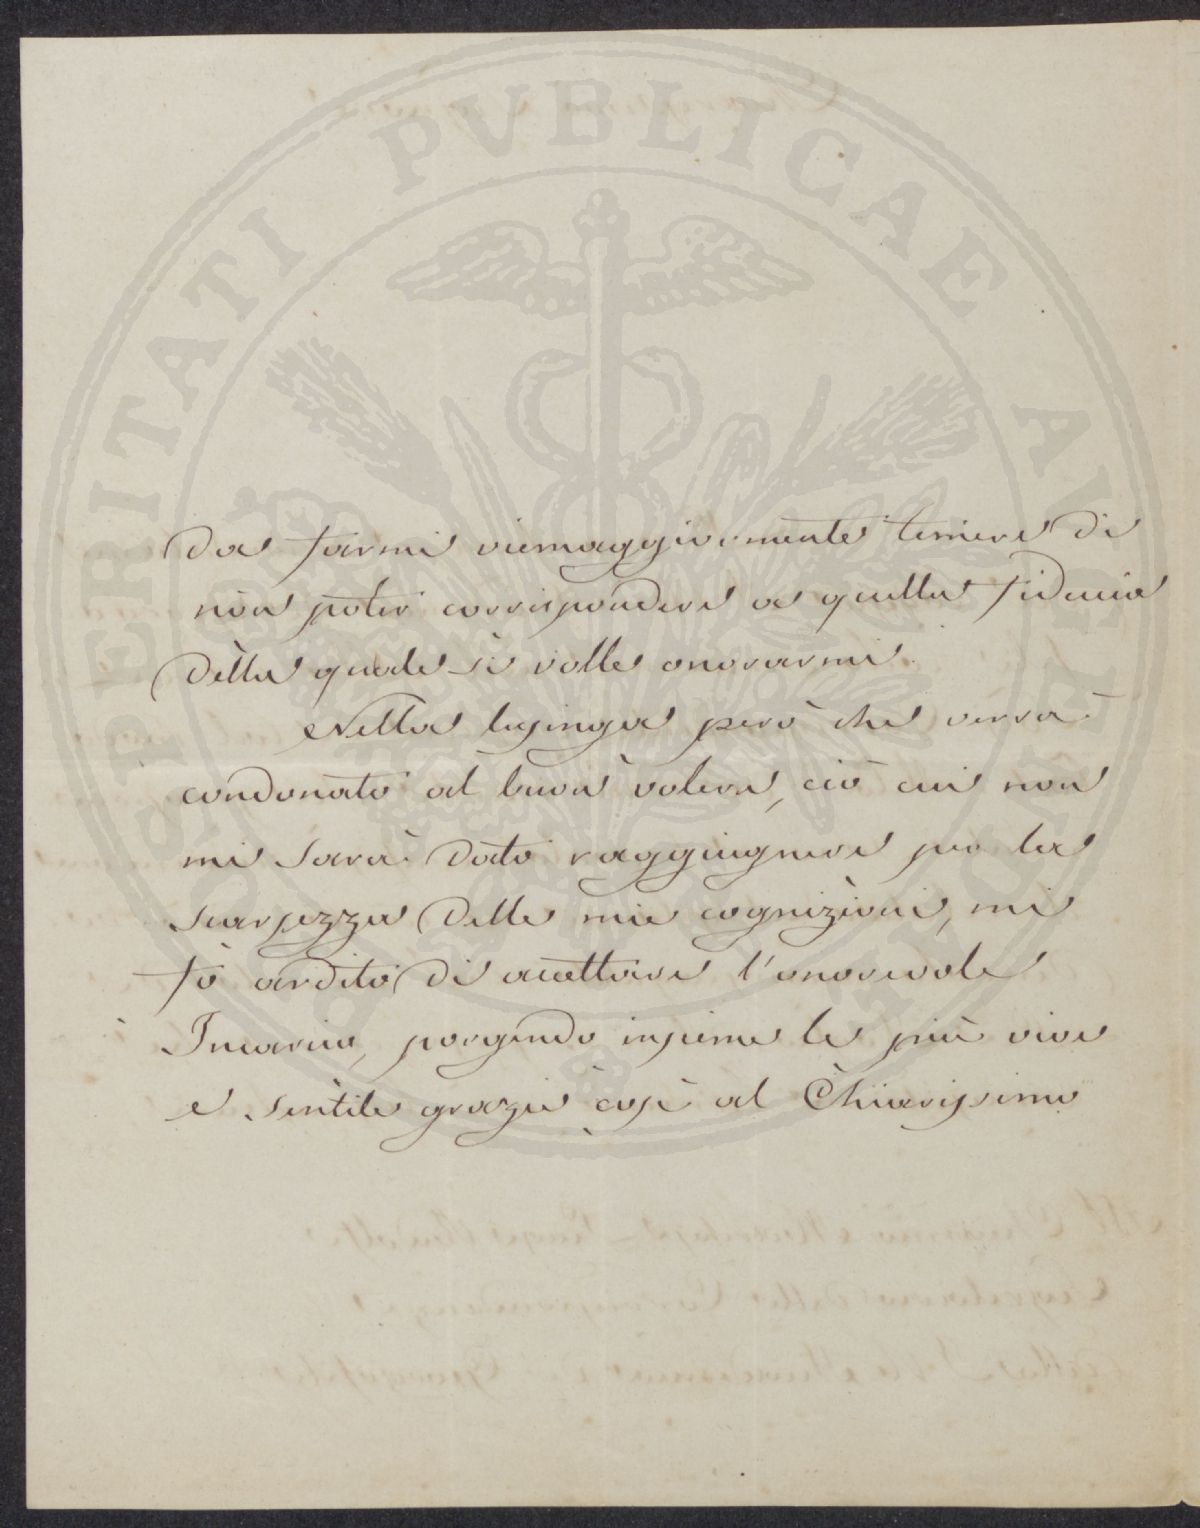 PROSPERITATI PUBLICAE AUGENDAE
da farmi viemaggiormente temere di
non poter corrispondere a quella fiducia
della quale si volle onorarmi.
Nella lusinga però che verrà
condonato al buon volere, ciò cui non
mi sarà dato raggiugnere per la
scarsezza delle mie cognizioni, mi
fò ardito di accettare l'onorevole
Incarico, porgendo insieme le più vive
e sentite grazie così al Chiarissimo